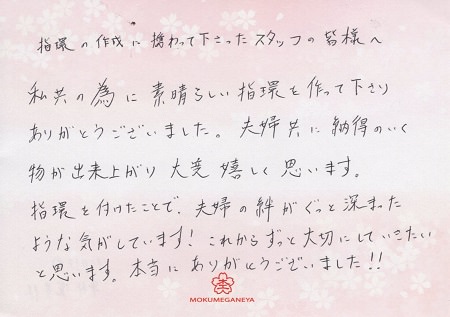 指環の作成に携わって下さったスタッフの皆様へ
私共の為に素晴らしい指環を作って下さり
ありがとうございました。夫婦共に納得のいく
物が出来上がり大変嬉しく思います。
指環を付けたことで、夫婦の絆がぐっと深まった
ような気がしています！これからずっと大切にしていきたい
と思います。本当にありがとうございました!!
MOKUMEGANEYA